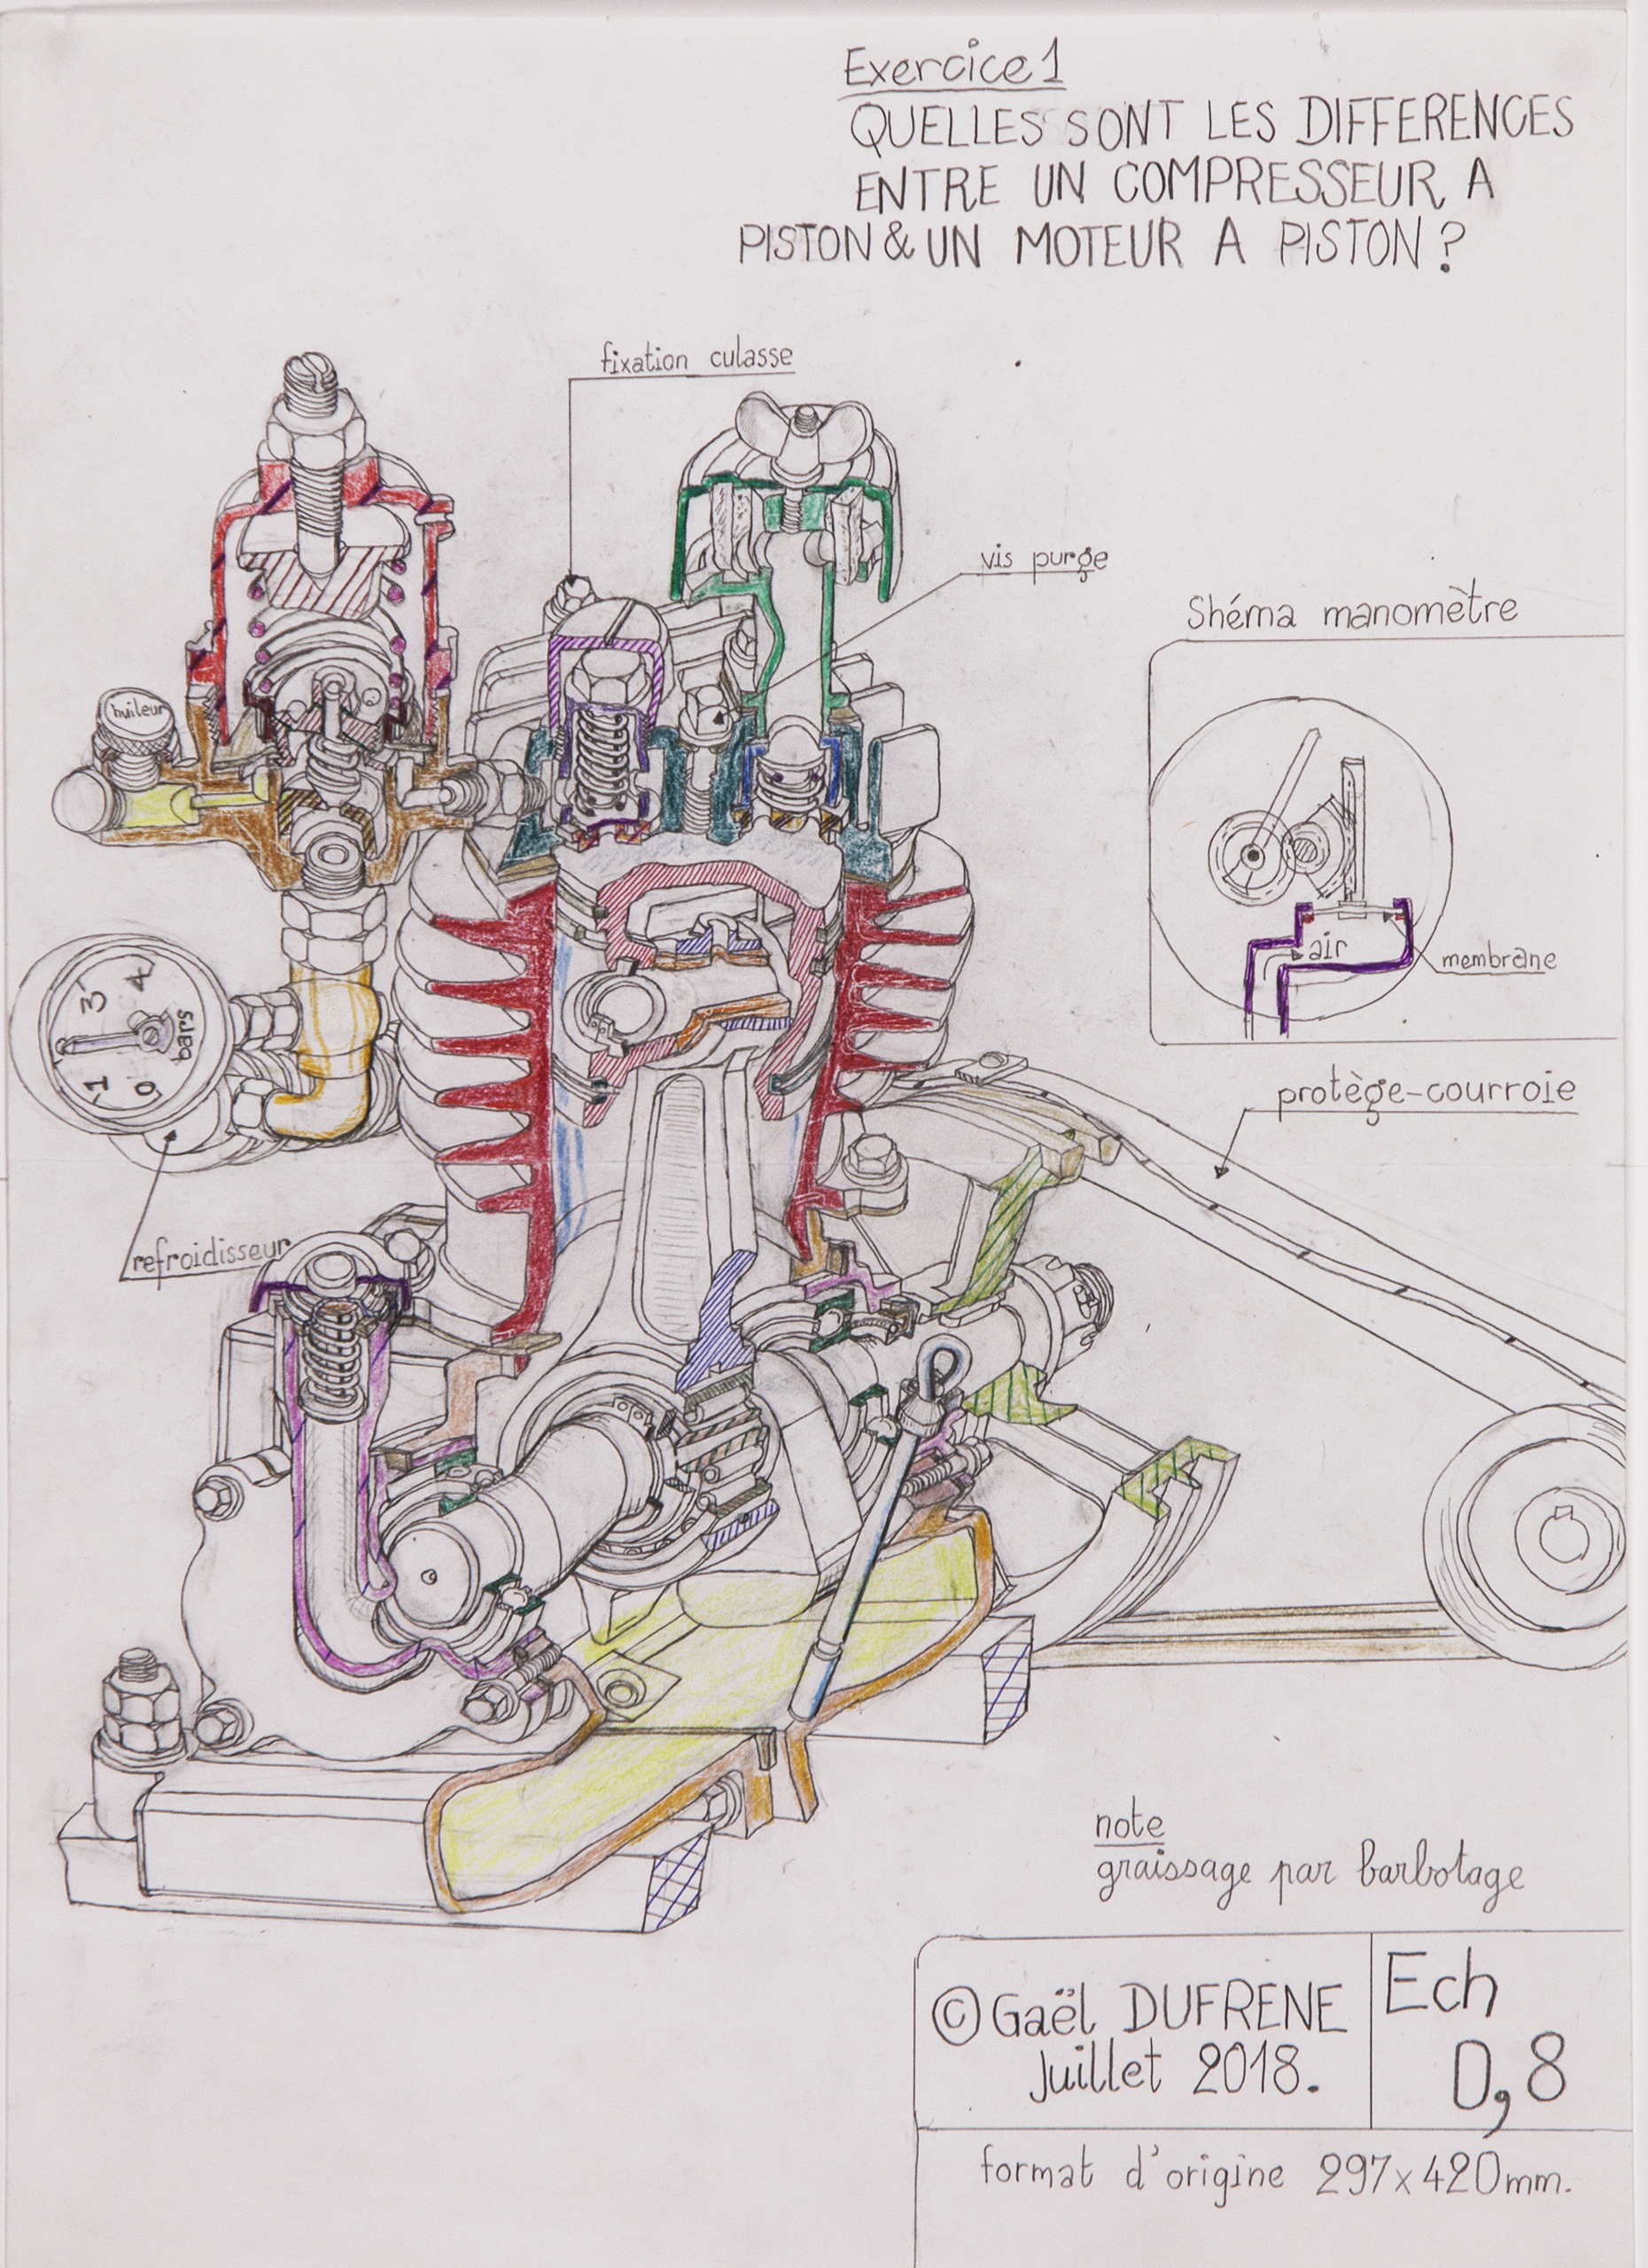 Exercice 1
QUELLES SONT LES DIFFERENCES
ENTRE UN COMPRESSEUR A
PISTON & UN MOTEUR A PISTON ?
fixation culasse
vis purge
Shéma manomètre
huileur
air
membrane
3
4
bars
1
0
protège-courroie
refroidisseur
note
graissage par barbotage
© Gaël DUFRENE
Juillet 2018.
Ech
0,8
format d'origine 297x420mm.